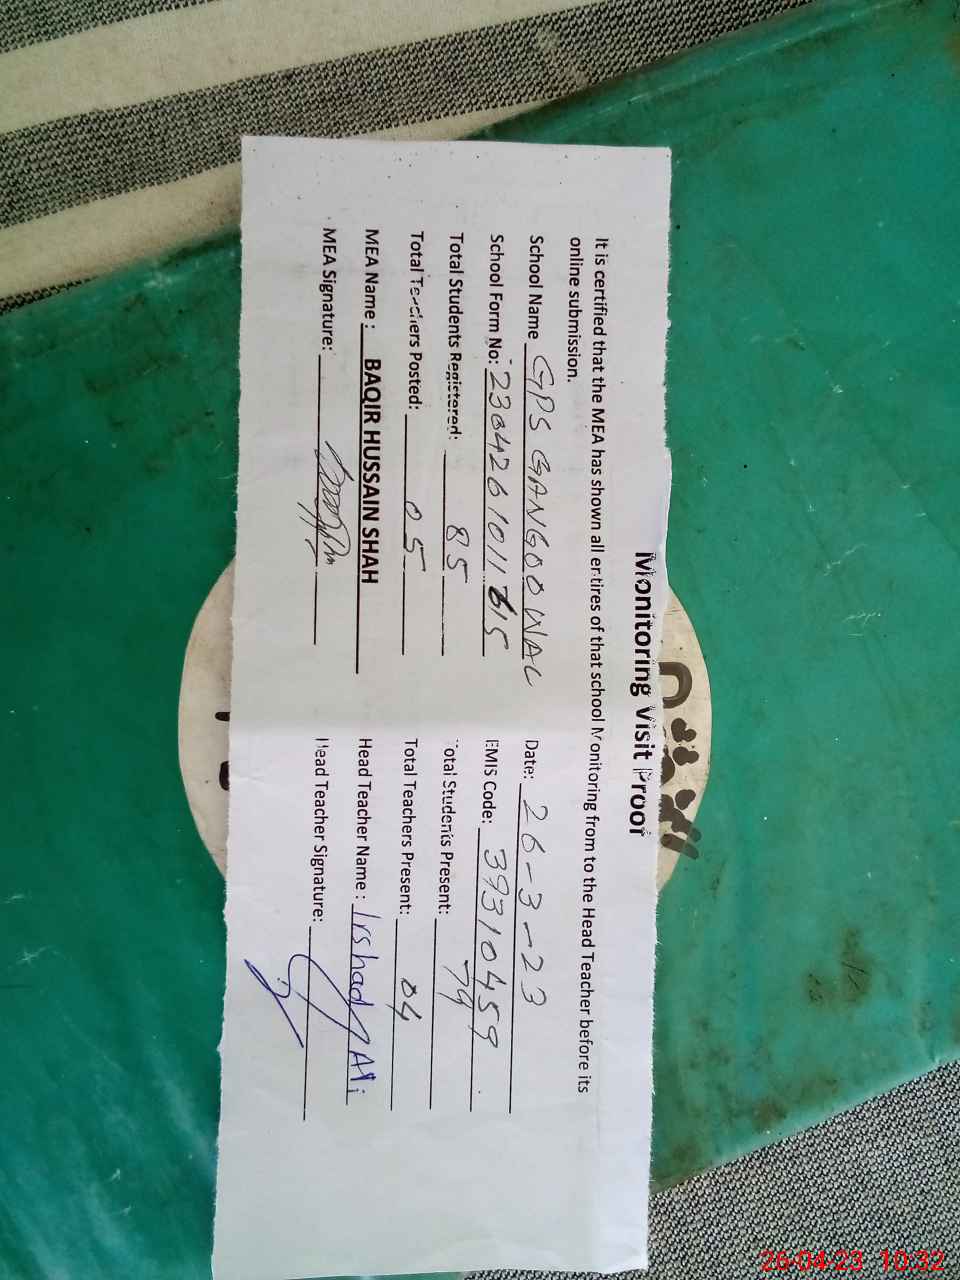 Monitoring Visit Proof
It is certified that the MEA has shown all entires of that school Monitoring from to the Head Teacher before its
online submission.
School Name GPS GANGOO WAC Date: 26-3-23
School Form No: 230426101 615 EMIS Code: 39310459
Total Students Registered: 85 Total Students Present: 79
Total Teachers Posted: 05 Total Teachers Present: 04
MEA Name : BAQIR HUSSAIN SHAH Head Teacher Name : Irshad Ali
MEA Signature: Head Teacher Signature:
26-04-23 10:32